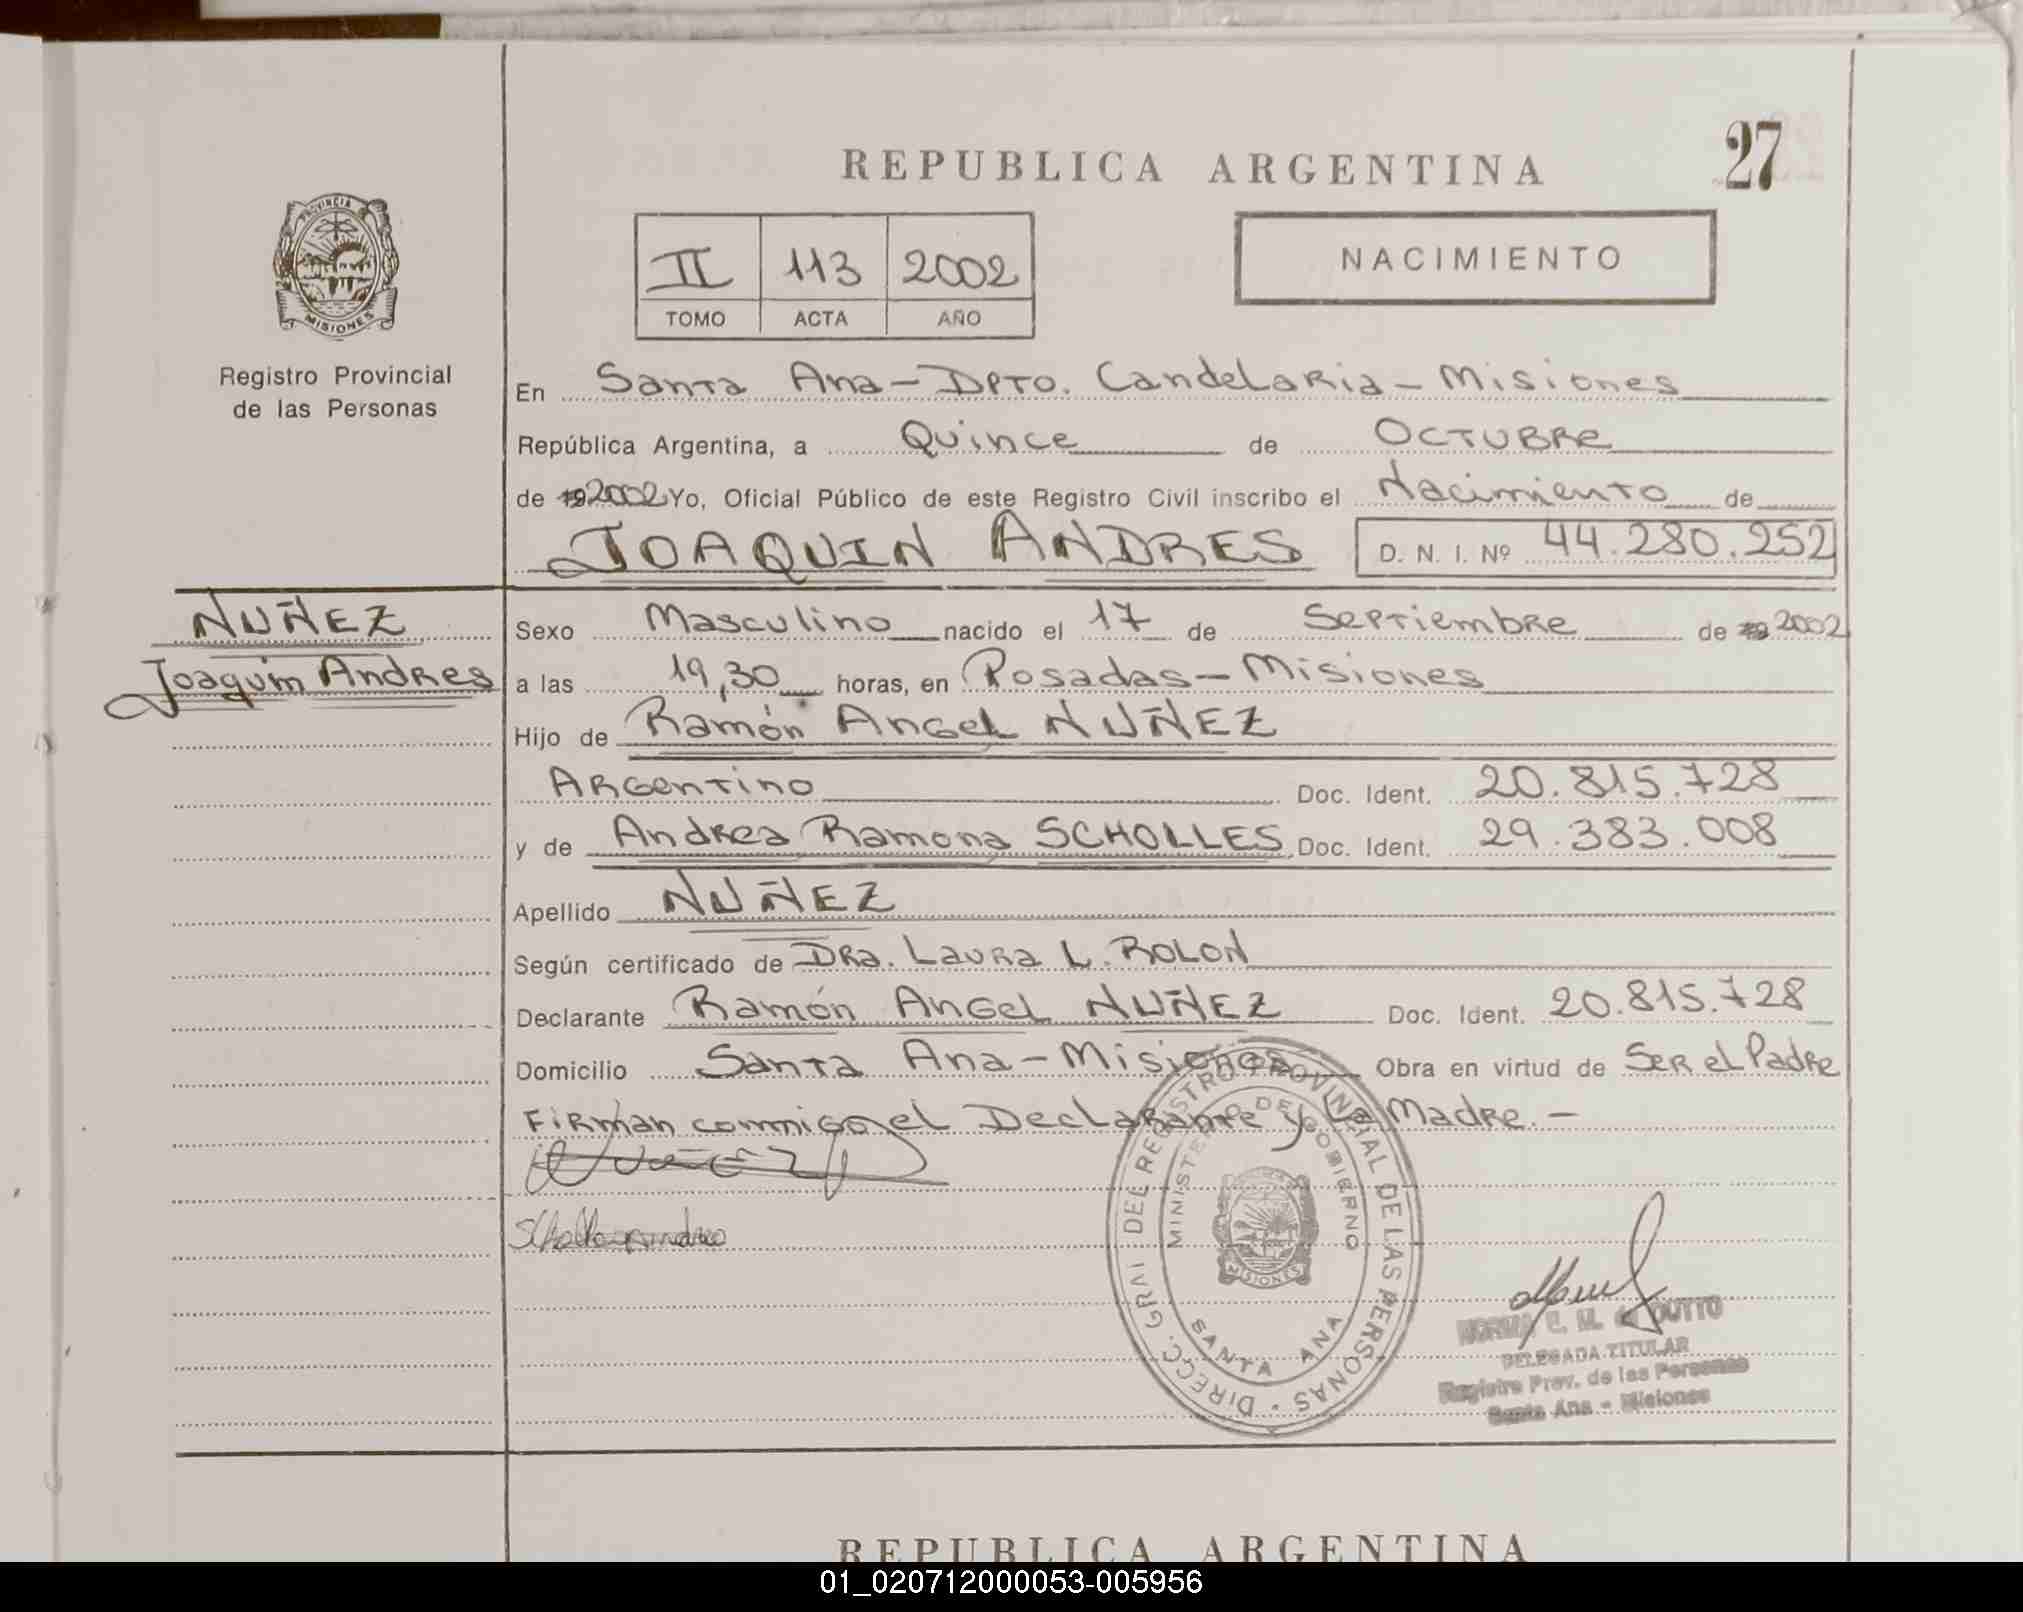 27
REPUBLICA ARGENTINA
PROVINCIA
MISIONES
Registro Provincial
de las Personas
II 113 2002
TOMO ACTA AÑO
NACIMIENTO
En Santa Ana - Dpto. Candelaria - Misiones
República Argentina, a Quince de OCTUBRE
de 19 2002 Yo, Oficial Público de este Registro Civil inscribo el Nacimiento de
JOAQUIN ANDRES D. N. I. Nº 44.280.252
NUÑEZ
Joaquin Andres
Sexo Masculino nacido el 17 de Septiembre de 19 2002
a las 19,30 horas, en Posadas - Misiones
Hijo de Ramón Angel NUÑEZ
Argentino Doc. Ident. 20.815.728
y de Andrea Ramona SCHOLLES Doc. Ident. 29.383.008
Apellido NUÑEZ
Según certificado de Dra. Laura L. ROLON
Declarante Ramón Angel NUÑEZ Doc. Ident. 20.815.728
Domicilio Santa Ana - Misiones Obra en virtud de Ser el Padre
Firman conmigo el Declarante y La Madre. -
DIRECC. GRAL DEL REGISTRO PROVINCIAL DE LAS PERSONAS
MINISTERIO DE GOBIERNO
MISIONES
SANTA ANA
NORMA E. M. de
DELEGADA TITULAR
Registro Prov. de las Personas
Santa Ana - Misiones
REPUBLICA ARGENTINA
01_020712000053-005956